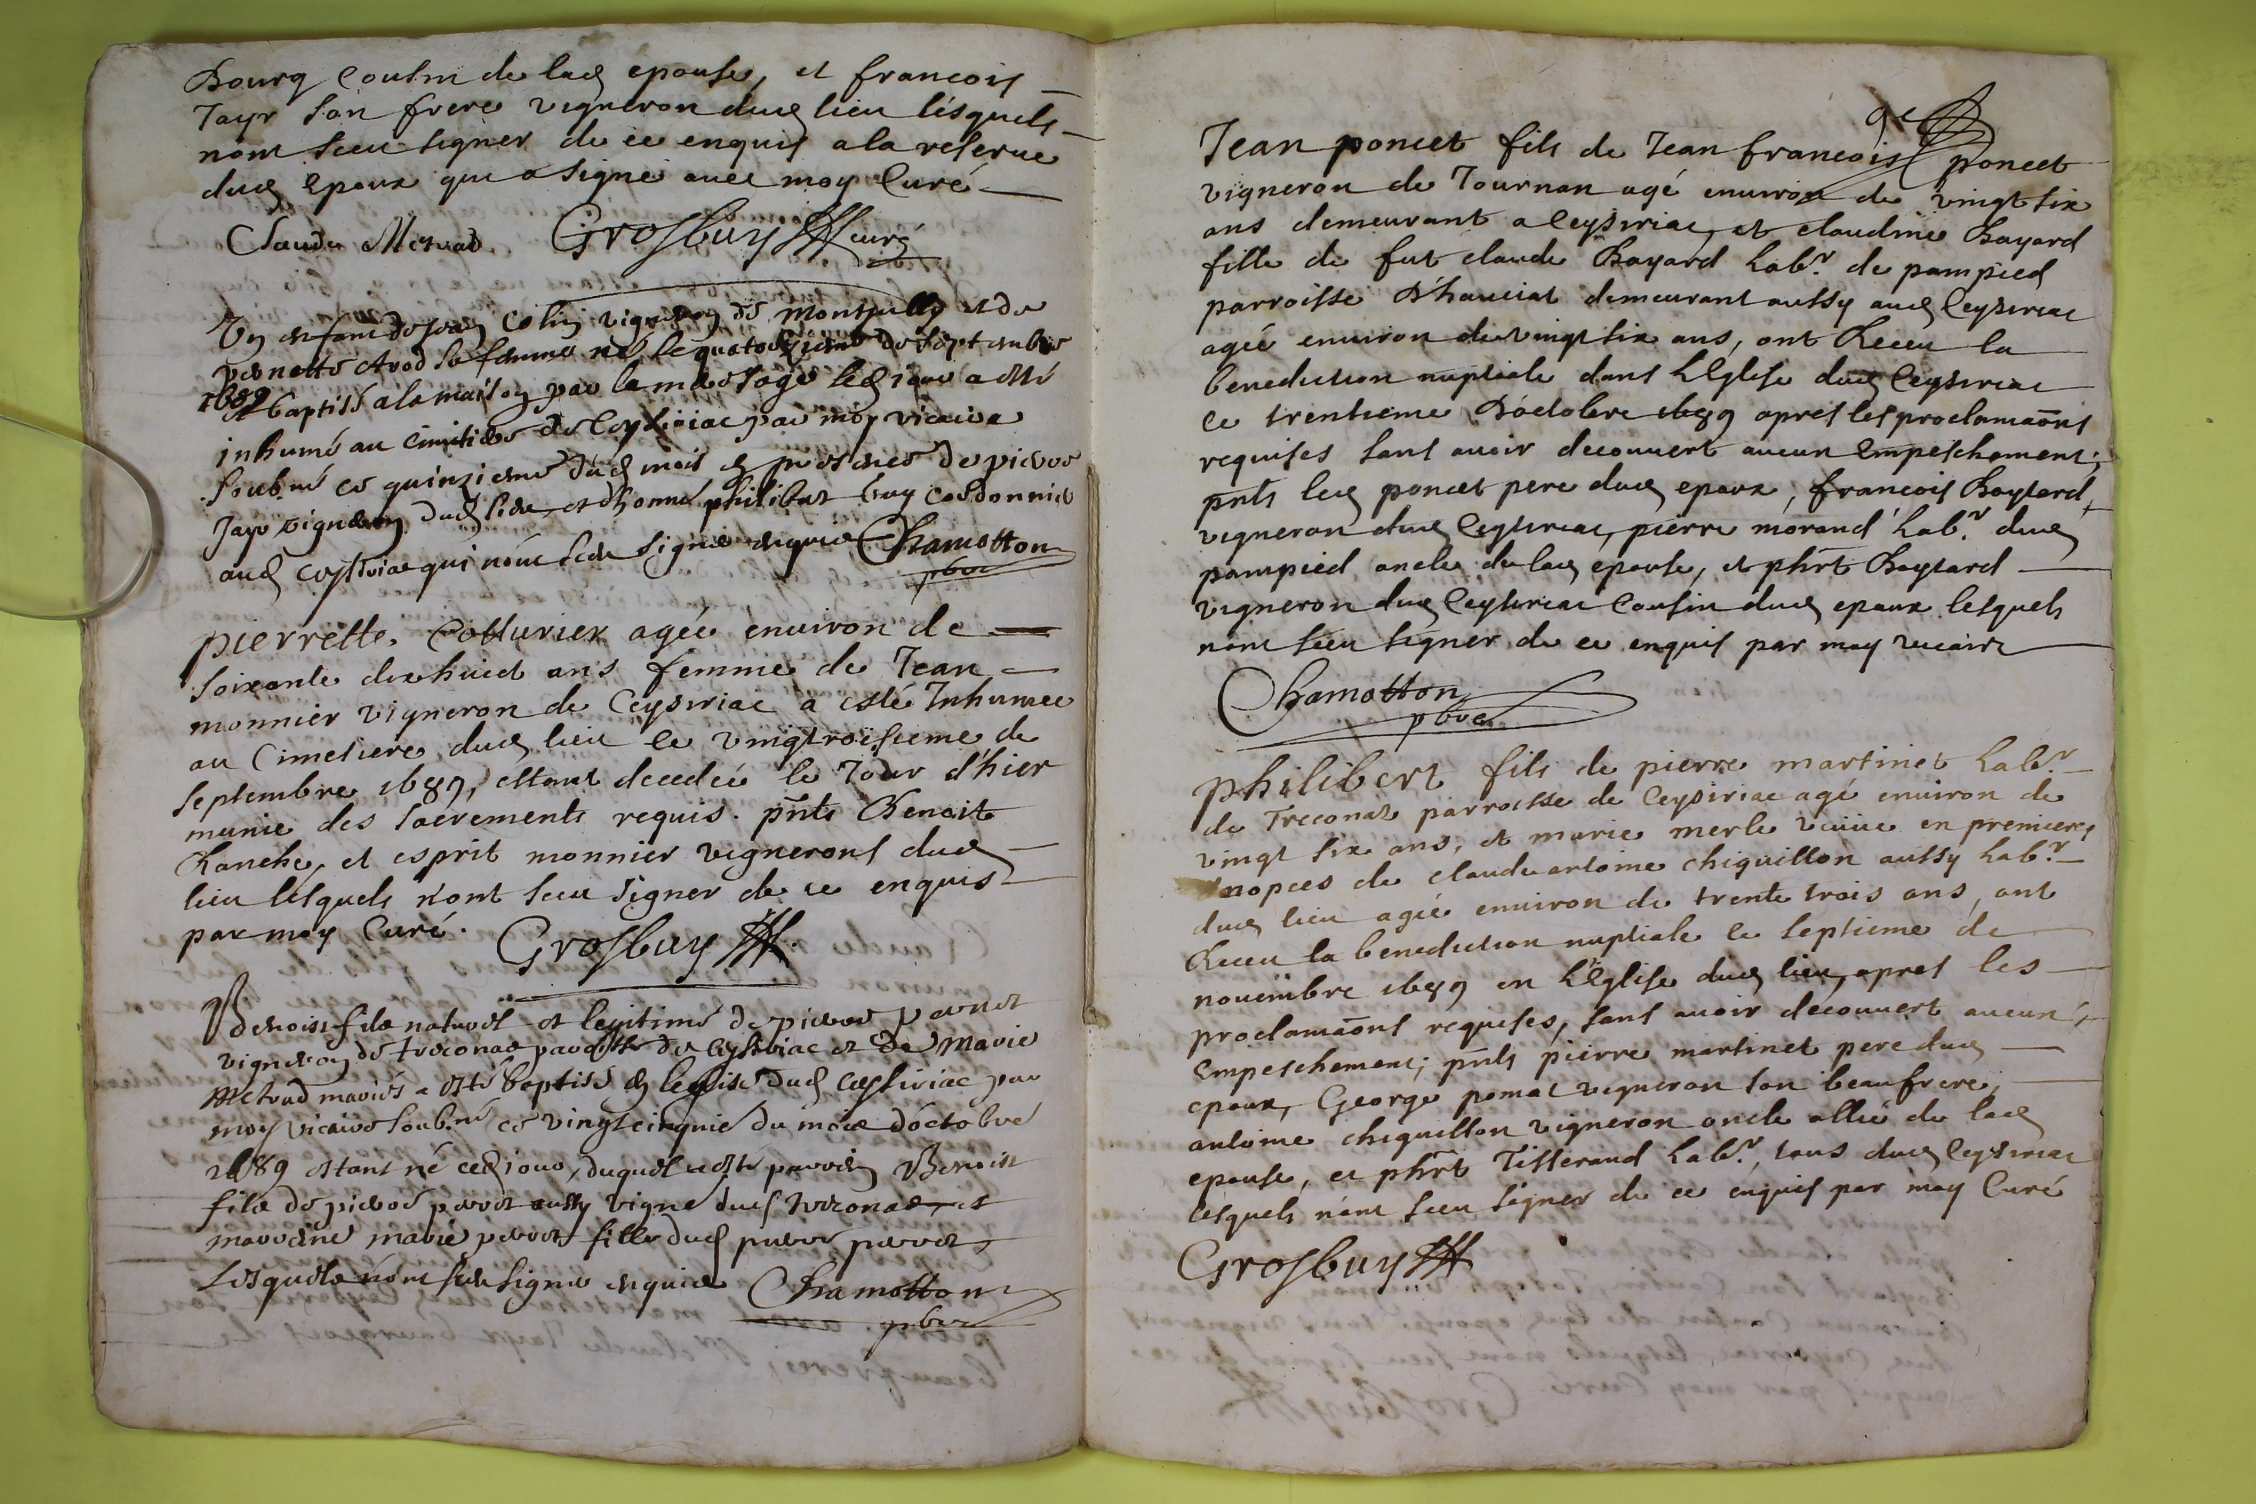 Bourg Cousin de lad epouse, et francois
Jayr son frere vigneron dud lieu lesquels
nont sceu signer de ce enquis a la reserue
dud Epoux qui a signé auec moy Curé
Claude Grosbuy curé
Un enfant de Colin vigneron de et de
sa femme né le quatorzieme de septembre
1689 baptisé a la maison par la mere sage led jour a esté
inhumé au cimitiere de Ceyseriac par moy vicaire
soubné ce quinzieme dud mois en presence de pierre
Jayr vigneron dud lieu et honné philibert cordonnier
aud ceyseriac qui nont sceu signé enquis Chamotton
pbre
pierrette Cotturier agée enuiron de
soixante dixhuict ans femme de Jean
monnier vigneron de Ceysiriac a esté Inhumee
au Cimetiere dud lieu le vingtroisieme de
septembre 1689, estant decedée le Jour d'hier
munie des sacrements requis. pnts Benoist
Ranche, et esprit monnier vignerons dud
lieu lesquels n'ont sceu signer de ce enquis
par moy Curé. Grosbuy
Benoist fils naturel et legitime de pierre
vigneron de treconas paroisse de Ceyseriac et de Marie
mariés a esté baptisé en leglise dud ceyseriac par
moy vicaire soub.né ce vingtcinquié du mois d'octobre
1689 estant né ced jour, duquel a esté parrain Benoist
fils de pierre aussy vigne dud treconas, et
marreine marie fille dud pierre
Lesquels n'ont sceu signer enquis Chamotton
pbre
Jean poncet fils de Jean francois poncet
vigneron de Journan agé enuiron de vingt six
ans demeurant a Ceysiriac, et claudine Bayard
fille de fut claude Bayard Labr. de pampied
parroisse D'hauciat demeurant aussy aud Ceysiriac
agée enuiron de vingt six ans, ont Receu la
benediction nuptiale dans L'Eglise dud Ceysiriac
ce trentieme D'octobre 1689 apres les proclamaons
requises sans auoir decouuert aucun Empeschement;
pnts led poncet pere dud epoux, francois Baytard,
vigneron dud Ceysiriac, pierre morand Labr. dud
pampied oncle de lad epouse, et phrt Baytard
vigneron dud Ceysiriac Cousin dud epoux lesquels
nont sceu signer de ce enquis par moy vicaire
Chamotton
pbre
philibert fils de pierre martinet Labr.
de Treconas parroisse de Ceysiriac agé enuiron de
vingt six ans, et marie merle veuue en premieres
nopces de claude antoine chiquillon aussy Labr.
dud lieu agée enuiron de trente trois ans, ont
Receu la benediction nuptiale le septieme de
nouembre 1689 en L'Eglise dud lieu, apres les
proclamaons requises, sans auoir decouuert aucun
Empeschement; pnts pierre martinet pere dud
epoux, George pomat vigneron son beaufrere,
antoine chiquillon vigneron oncle allié de lad
epouse, et phrt Tisserand Labr. tous dud Ceysiriac
lesquels n'ont sceu signer de ce enquis par moy Curé
Grosbuy